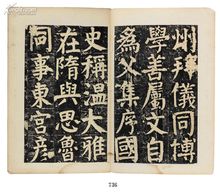 州拜儀同博
學善屬文自
爲父集序國
史稱溫大雅
在隋與思魯
同事東宮彦
736